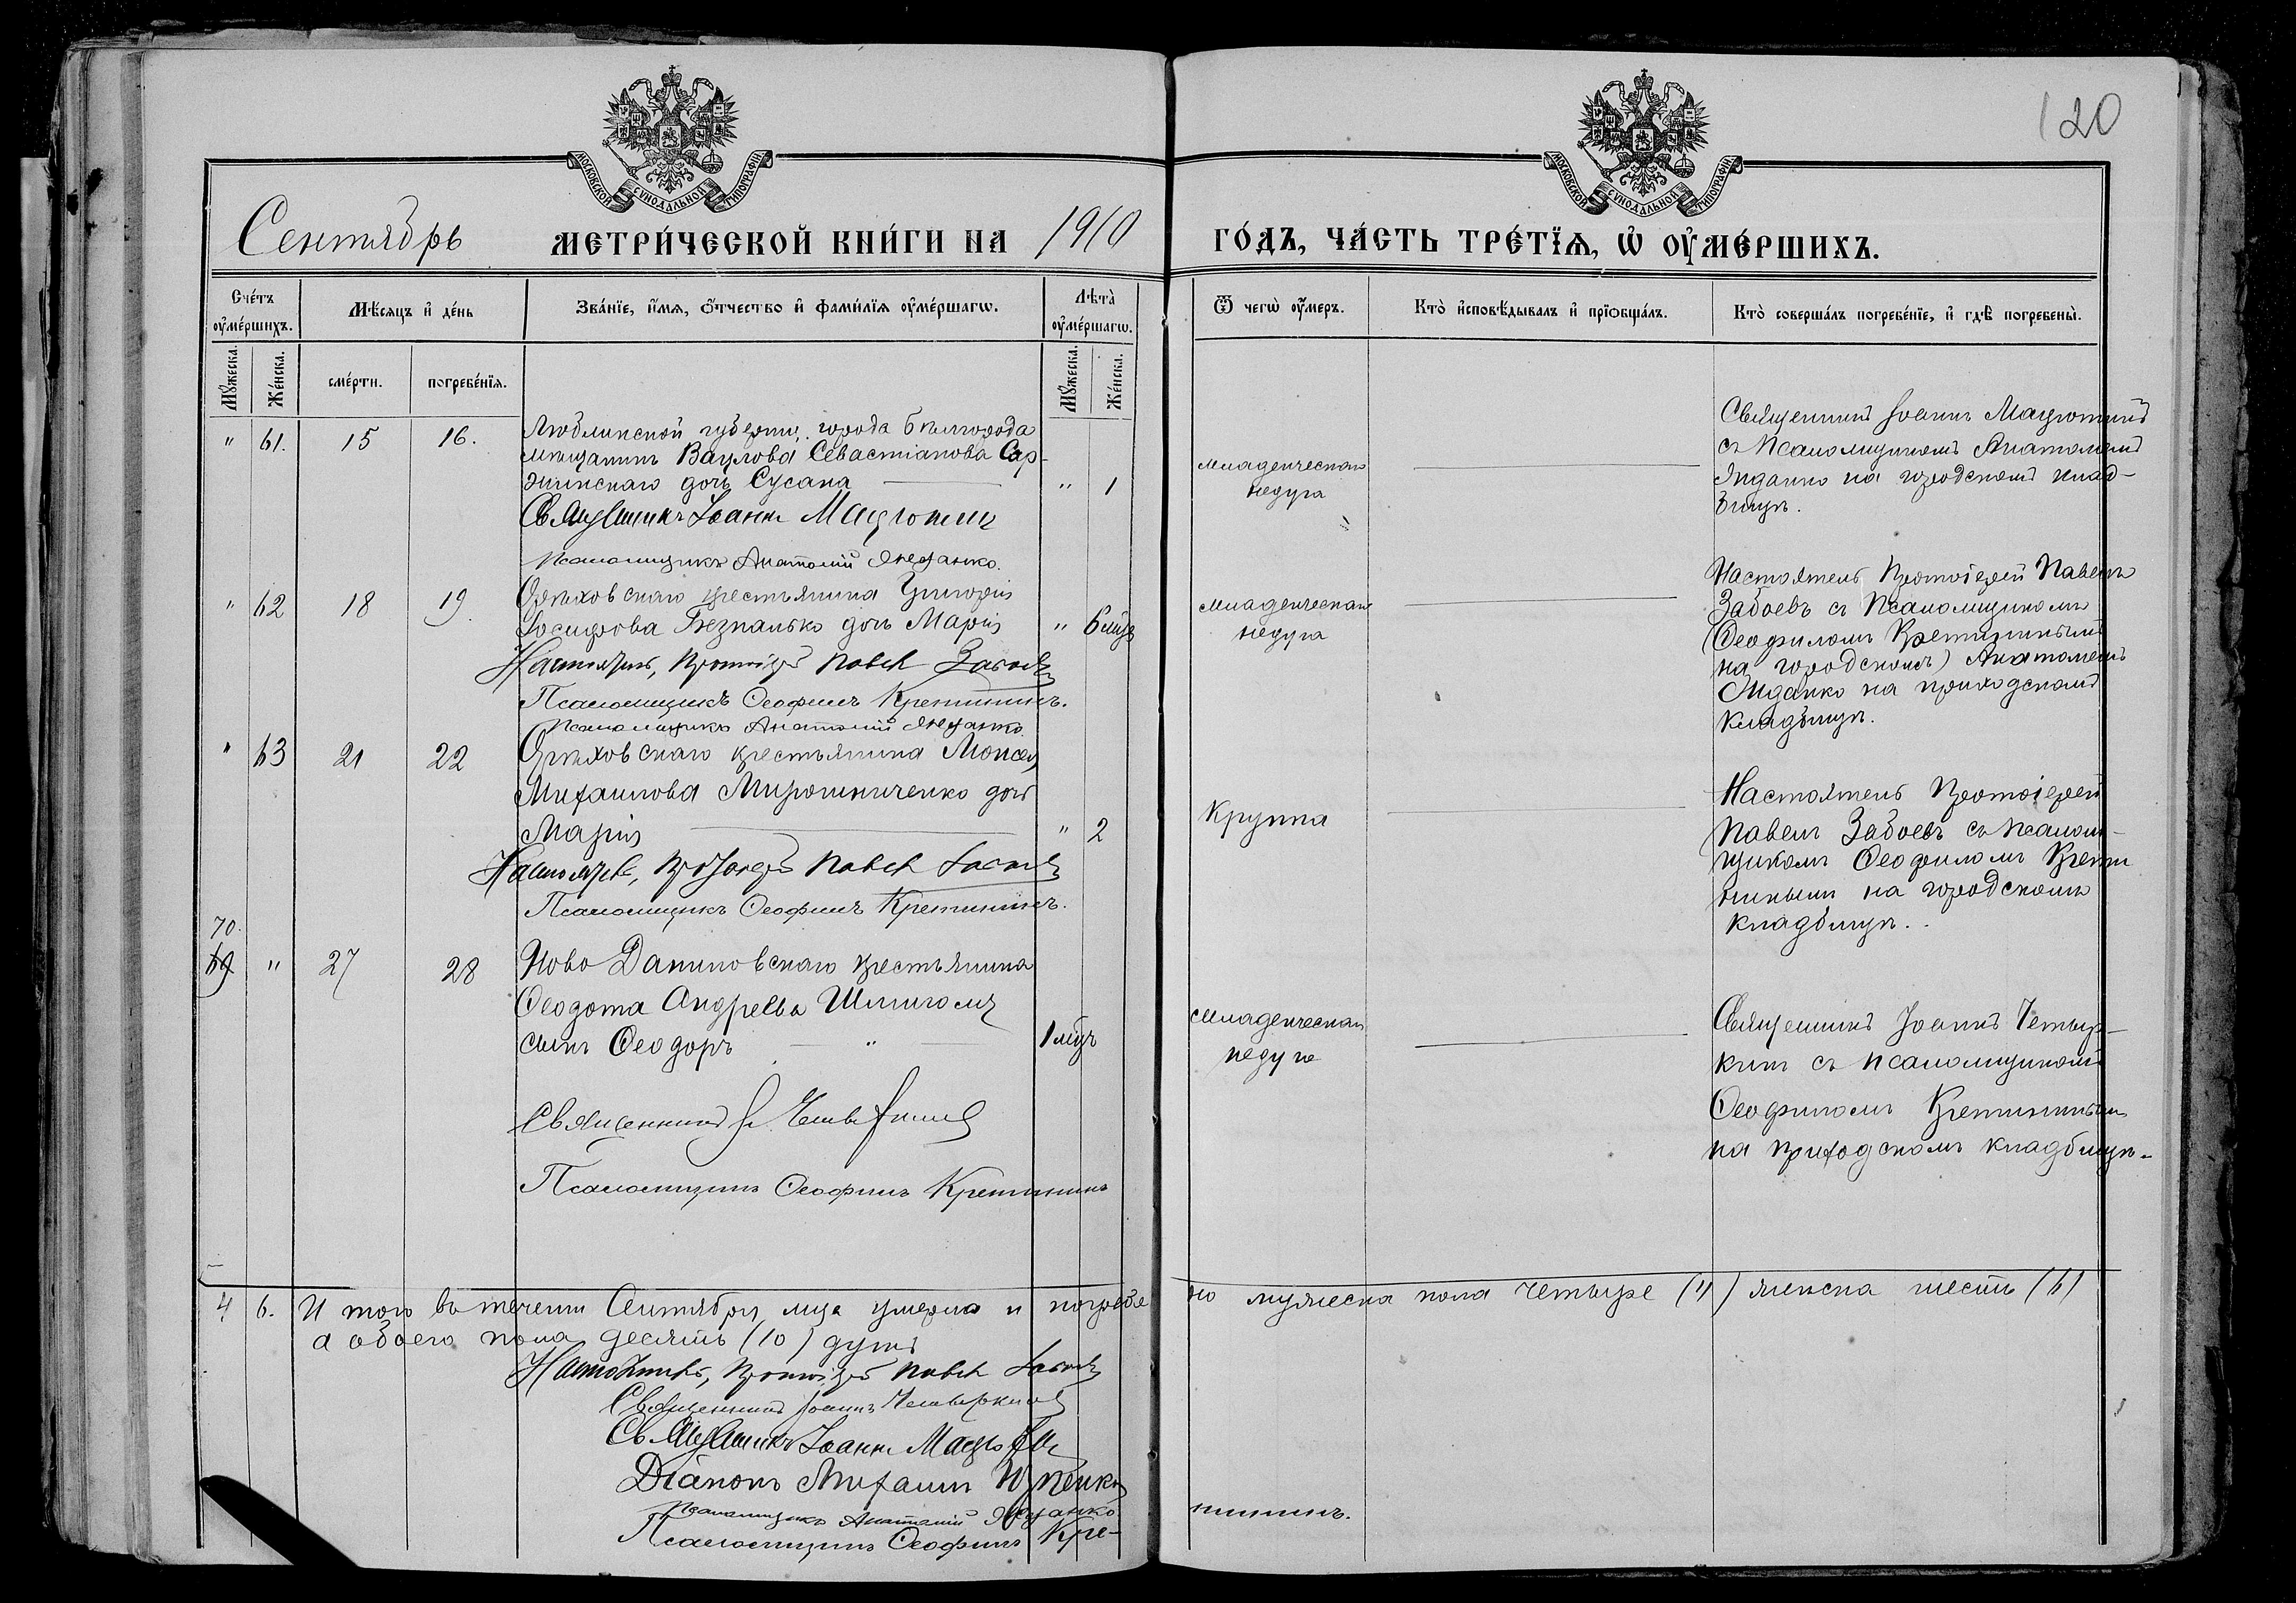 120
МОСКОВСКОЙ СѴНОДАЛЬНОЙ ТИПОГРАФІИ
МОСКОВСКОЙ СѴНОДАЛЬНОЙ ТИПОГРАФІИ
Сентябрь МЕТРИ́ЧЕСКОЙ КНИ́ГИ НА 1910 ГО́ДЪ, ЧА́СТЬ ТРЕ́ТЇѦ, Ѡ҆ ОУ҆МЕ́РШИХЪ.
Сче́тъ оу҆ме́ршихъ.
Мѣ́сяцъ и҆ де́нь
Зва́нїе, и҆́мя, о҆́тчество и҆ фами́лїя оу҆ме́ршагѡ.
Лѣта̀ оу҆ме́ршагѡ.
Ѿ чегѡ̀ оу҆́меръ.
Кто̀ и҆сповѣ́дывалъ и҆ прїѡбща́лъ.
Кто̀ соверша́лъ погребе́нїе, и҆ гдѣ̀ погребены̀.
Мꙋ́жеска. Же́нска. сме́рти. погребе́нїя. Мꙋ́жеска. Же́нска.
" 61. 15 16.
Люблинской губерніи, города Бѣлгорода
мѣщанина Вацлова Севастіанова
дочь Сусана " 1
Священникъ Іоаннъ
Псаломщикъ Анатолій Янданко.
младенческаго
недуга
Священникъ Іоаннъ
съ Псаломщикомъ Анатоліемъ
Янданко на городскомъ клад-
бищѣ.
" 62 18 19.
Орѣховскаго крестьянина Григорія
Іосифова Безпалько дочь Марія " 6 мцѣ
Настоятель, Протоіерей Павелъ Забоевъ
Псаломщикъ Ѳеофилъ Кретининъ.
Псаломщикъ Анатолій Янданко
младенческаго
недуга
Настоятель Протоіерей Павелъ
Забоевъ съ Псаломщикомъ
(Ѳеофиломъ Кретининымъ
на городскомъ) Анатоліемъ
Янданко на приходскомъ
кладбищѣ.
" 63 21 22
Орѣховскаго крестьянина Моисея
Михаилова Мирошниченко дочь
Марія " 2
Настоятель, Протоіерей Павелъ Забоевъ
Псаломщикъ Ѳеофилъ Кретининъ.
Круппа
Настоятель Протоіерей
Павелъ Забоевъ съ Псалом-
щикомъ Ѳеофиломъ Крети
нинымъ на городскомъ
кладбищѣ.
70.
69 " 27 28
Ново Даниловскаго крестьянина
Ѳеодота Андреева
сынъ Ѳеодоръ " 1 мцъ
Священникъ І. Четыркинъ
Псаломщикъ Ѳеофилъ Кретининъ
младенческаго
недуга
Священникъ Іоаннъ Четыр-
кинъ съ псаломщикомъ
Ѳеофиломъ Кретининымъ
на приходскомъ кладбищѣ.
4 6. И того въ теченіи Сентября мца умерло и погребено мужеска пола четыре (4) женска шесть (6)
а обоего пола десять (10) душъ
Настоятель, Протоіерей Павелъ Забоевъ
Священникъ Іоаннъ Четыркинъ
Священникъ Іоаннъ
Діаконъ Михаилъ
Псаломщикъ Анатолій Янданко
Псаломщикъ Ѳеофилъ Кре-
тининъ.